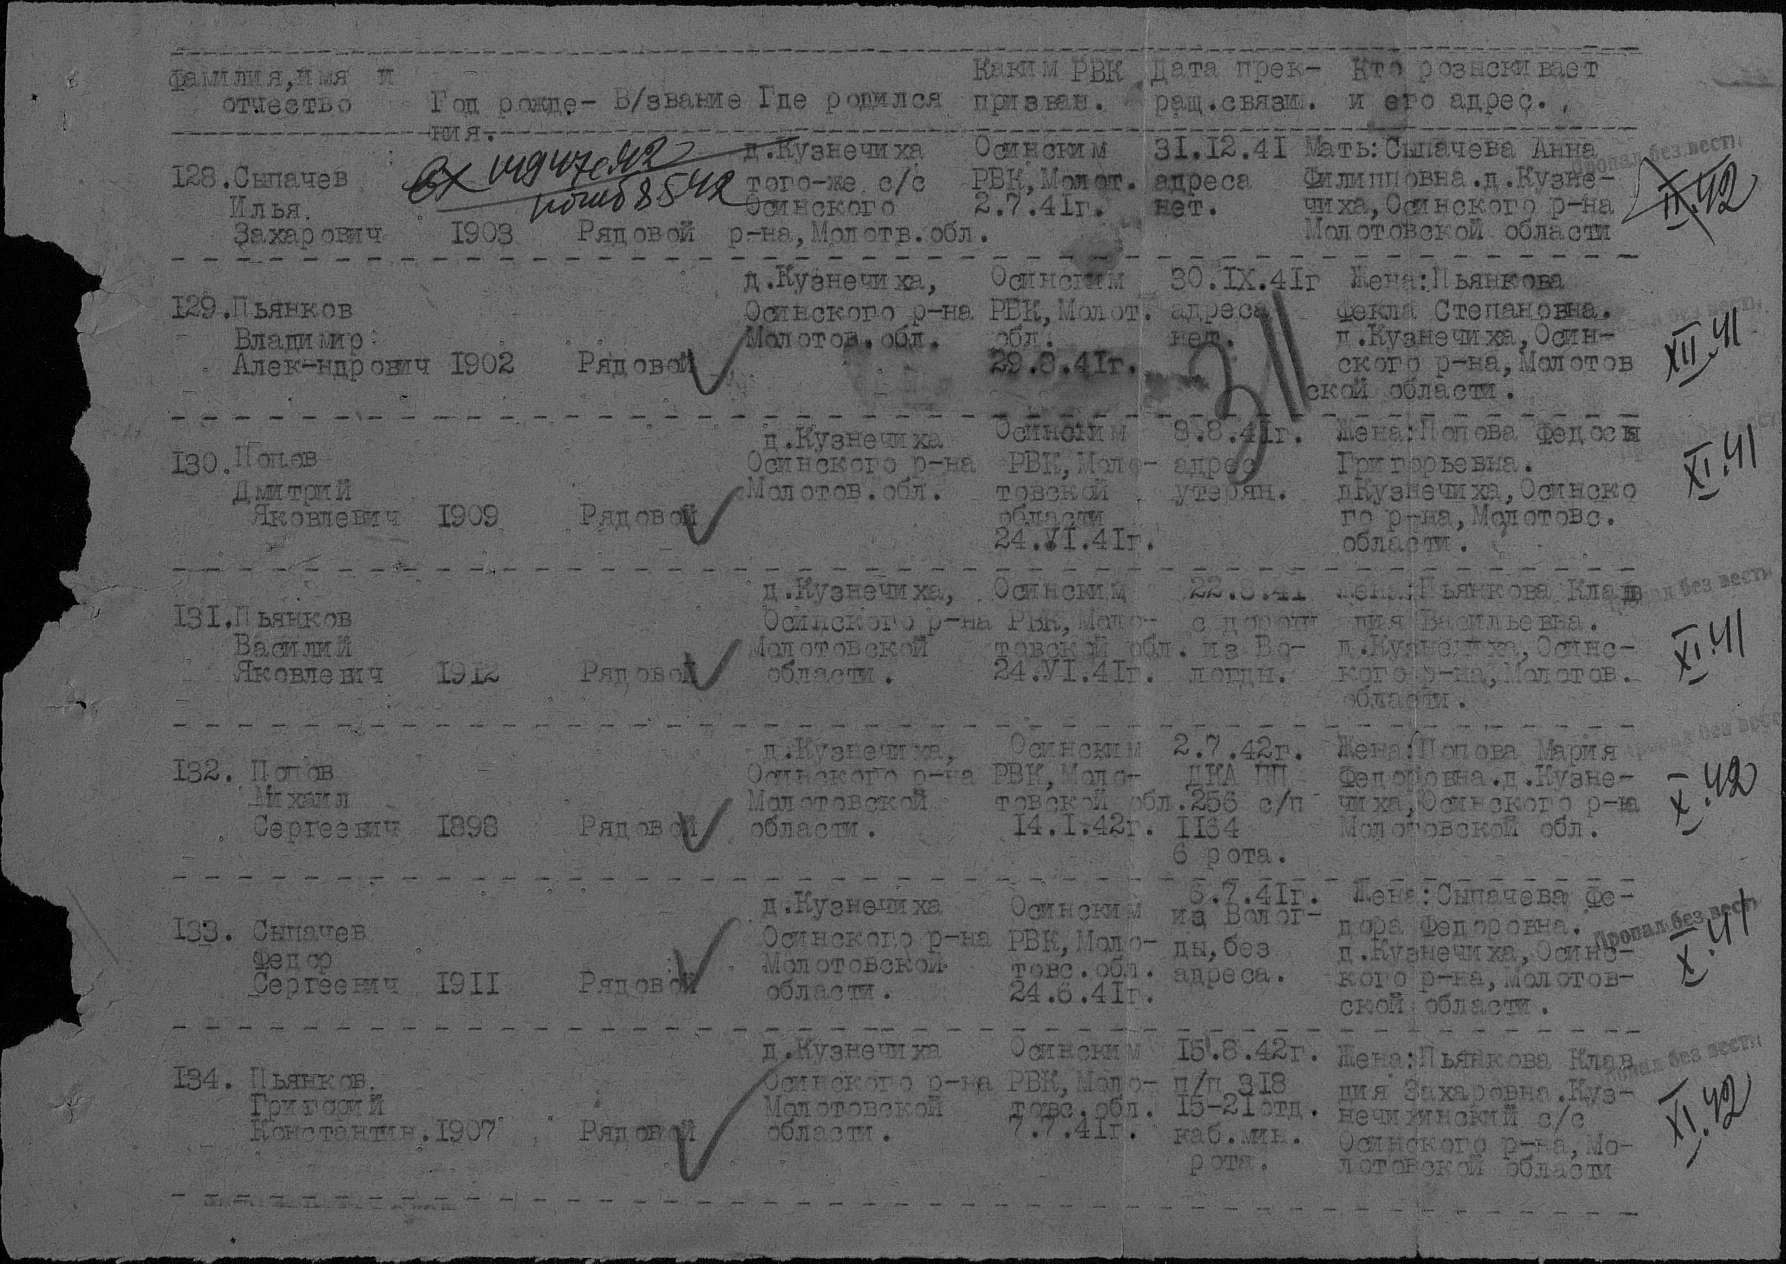 фамилия,имя и отчество
Год рожде-ния.
В/звание
Где родился
Каким РВК призван.
Дата прек-ращ.связи.
Кто розыскивает и его адрес.
128.Сыпачев
Илья
Захарович
1903
Рядовой
д.Кузнечиха
того-же с/с
Осинского
р-на,Молотв.обл.
Осинским
РВК,Молот.
2.7.41г.
31.12.41
адреса
нет.
Мать:Сыпачева Анна
Филипповна.д.Кузне-
чиха,Осинского р-на
Молотовской области
II.42
129.Пьянков
Владимир
Алек-ндрович
1902
Рядовой
д.Кузнечиха,
Осинского р-на
Молотов.обл.
Осинским
РВК,Молот.
обл.
29.8.41г.
30.IX.41г
адреса
нет.
Жена:Пьянкова
Фекла Степановна.
д.Кузнечиха,Осин-
ского р-на,Молотов
ской области.
XII.41
130.Попов
Дмитрий
Яковлевич
1909
Рядовой
д.Кузнечиха
Осинского р-на
Молотов.обл.
Осинским
РВК,Моло-
товской
области
24.VI.41г.
8.8.41г.
адрес
утерян.
Жена:Попова Федосья
Григорьевна.
дКузнечиха,Осинско
го р-на,Молотовс.
области.
XI.41
131.Пьянков
Василий
Яковлевич
1912
Рядовой
д.Кузнечиха,
Осинского р-на
Молотовской
области.
Осинским
РВК,Моло-
товской обл.
24.VI.41г.
22.8.41
с дороги
из Во-
логды.
Жена:Пьянкова Клав
дия Васильевна.
д.Кузнечиха,Осинс-
кого р-на,Молотов.
области.
Пропал без вести
XI.41
132. Попов
Михаил
Сергеевич
1898
Рядовой
д.Кузнечиха,
Осинского р-на
Молотовской
области.
Осинским
РВК,Моло-
товской обл.
14.I.42г.
2.7.42г.
ДКА ПП
256 с/п
1164
6 рота.
Жена:Попова Мария
Федоровна.д.Кузне-
чиха,Осинского р-на
Молотовской обл.
X.42
133. Сыпачев
Федор
Сергеевич
1911
Рядовой
д.Кузнечиха
Осинского р-на
Молотовской
области.
Осинским
РВК,Моло-
товс.обл.
24.6.41г.
6.7.41г.
из Волог-
ды,без
адреса.
Жена:Сыпачева Фе-
дора Федоровна.
д.Кузнечиха,Осинс-
кого р-на,Молотов-
ской области.
Пропал без вести
X.41
134. Пьянков
Григорий
Константин.
1907
Рядовой
д.Кузнечиха
Осинского р-на
Молотовской
области.
Осинским
РВК,Моло-
товс.обл.
7.7.41г.
15.8.42г.
п/п 318
15-21отд.
каб.мин.
рота.
Жена:Пьянкова Клав
дия Захаровна.Куз-
нечихинский с/с
Осинского р-на,Мо-
лотовской области
XI.42